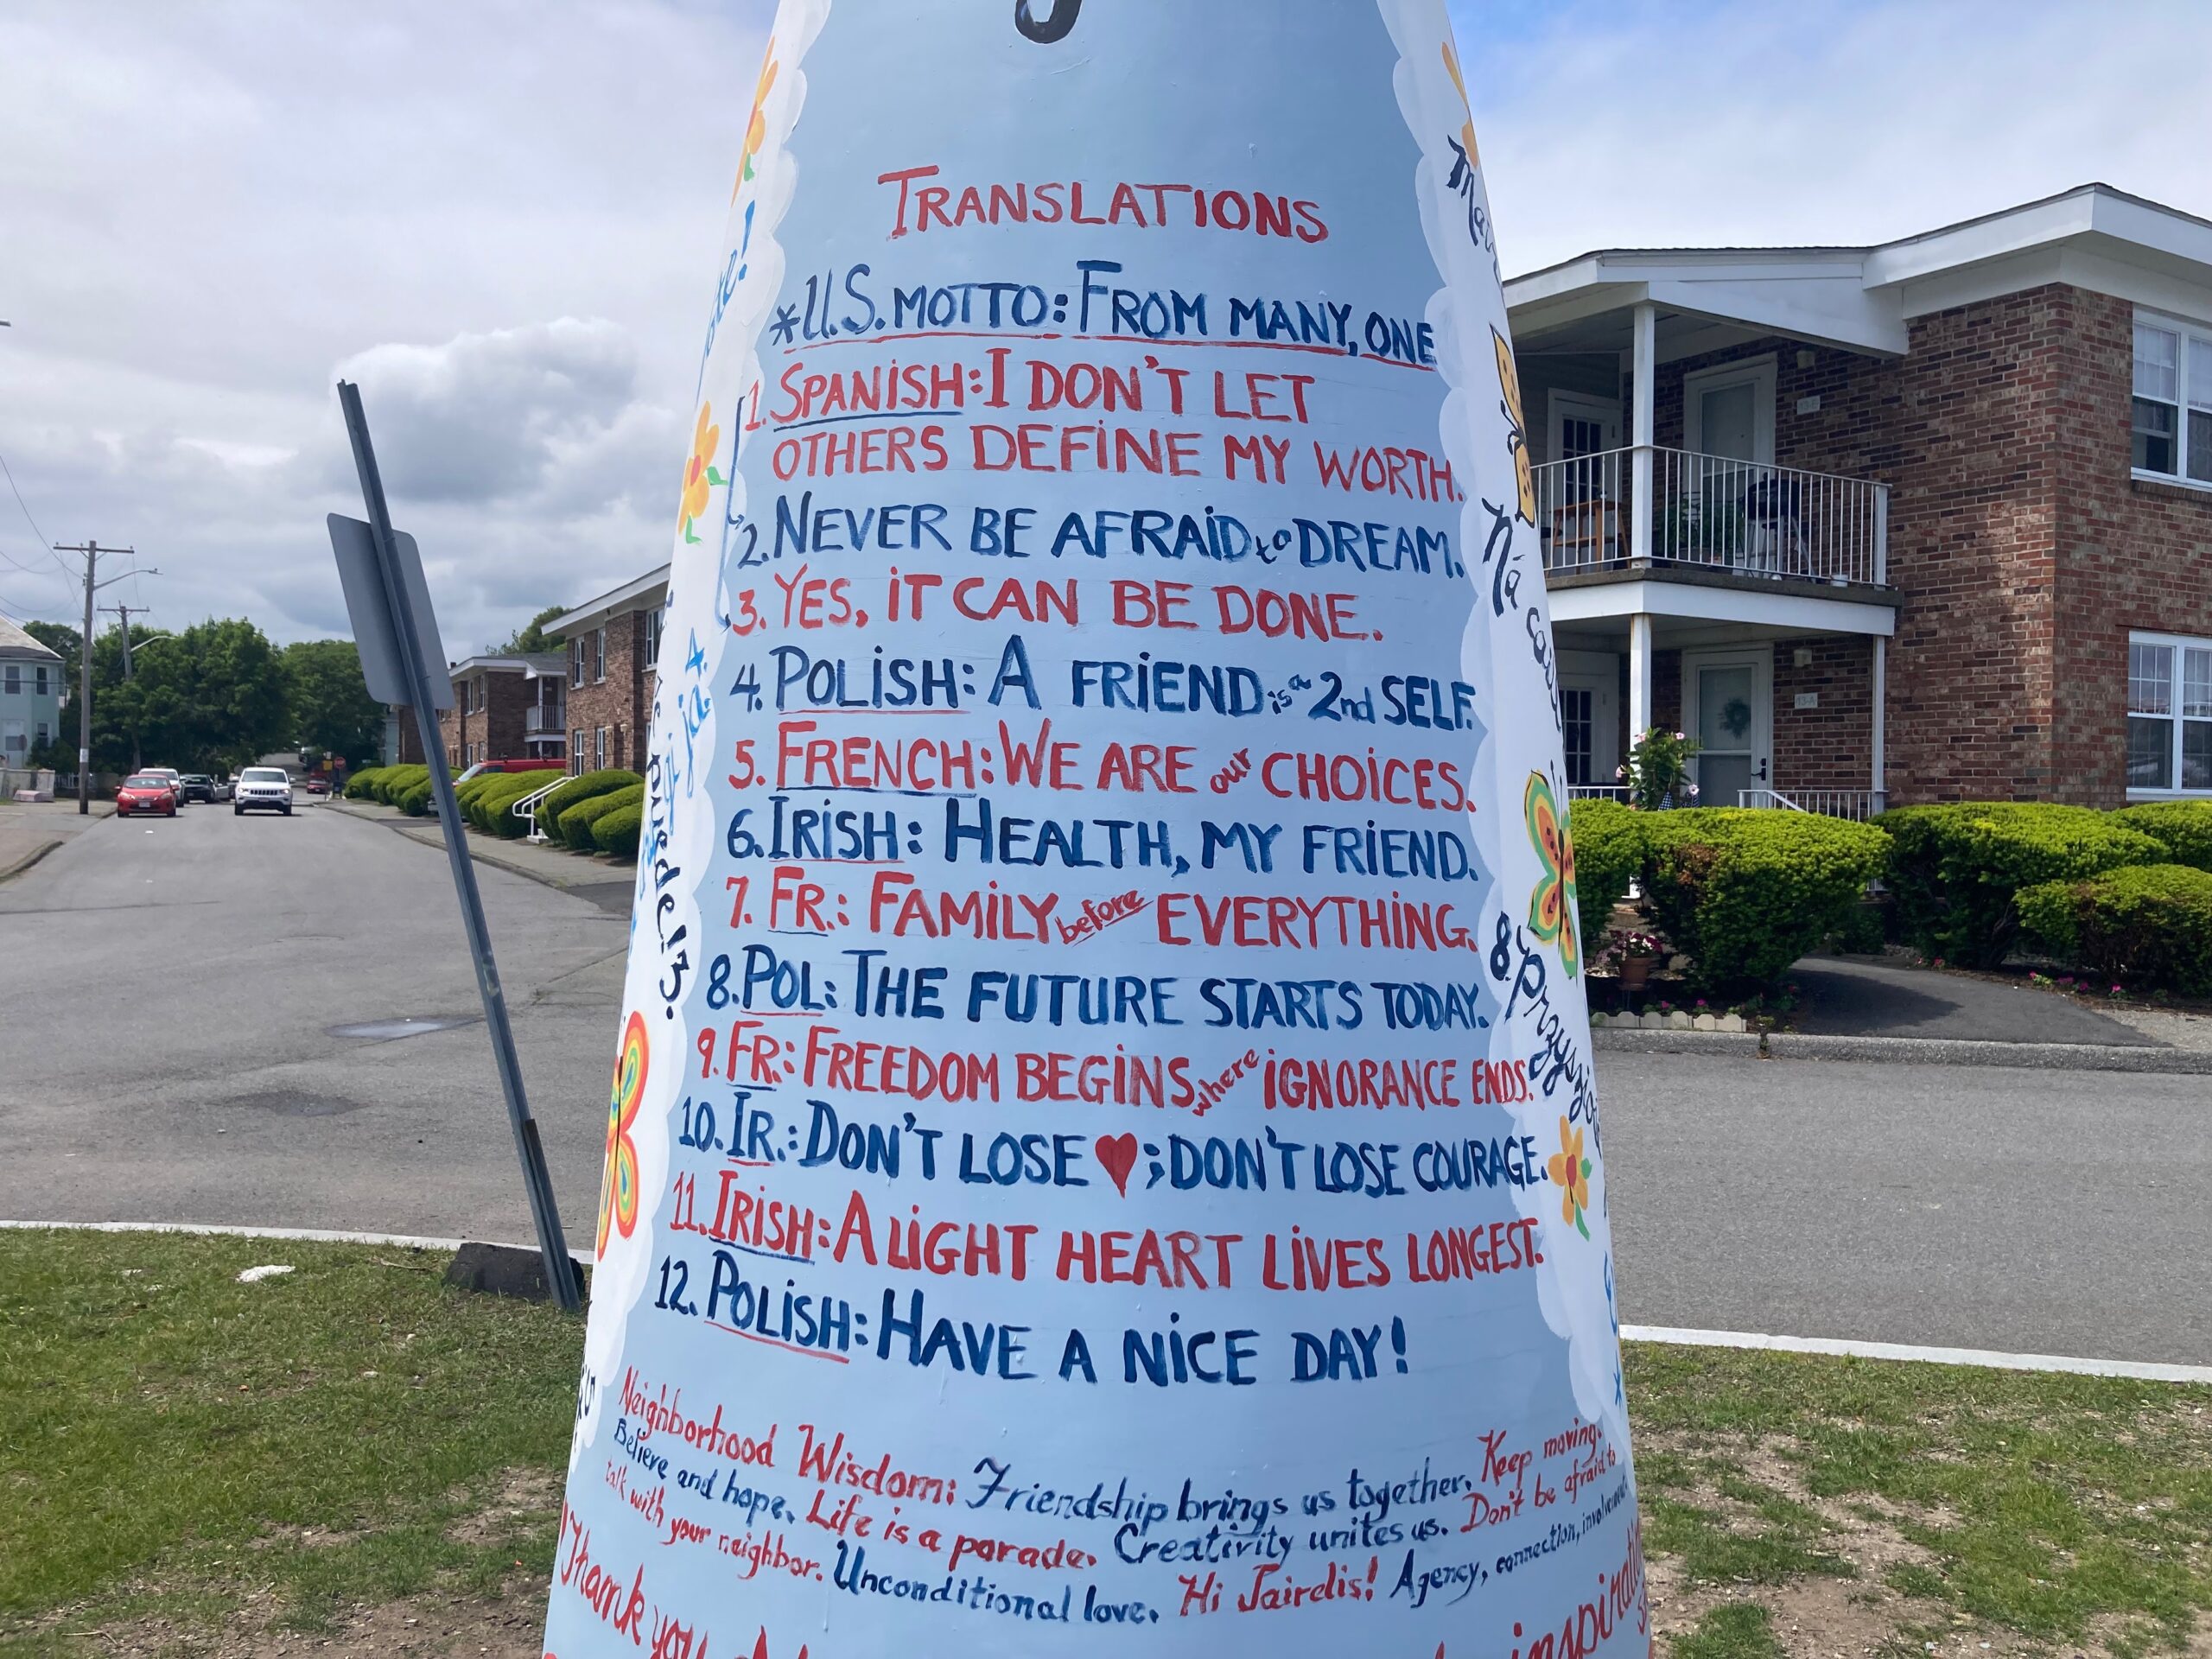 TRANSLATIONS
*U.S. MOTTO: FROM MANY, ONE
1. SPANISH: I DON'T LET
OTHERS DEFINE MY WORTH.
2. NEVER BE AFRAID to DREAM.
3. YES, IT CAN BE DONE.
4. POLISH: A FRIEND is a 2nd SELF.
5. FRENCH: WE ARE our CHOICES.
6. IRISH: HEALTH, MY FRIEND.
7. FR.: FAMILY before EVERYTHING.
8. POL: THE FUTURE STARTS TODAY.
9. FR.: FREEDOM BEGINS where IGNORANCE ENDS.
10. IR.: DON'T LOSE ♥; DON'T LOSE COURAGE.
11. IRISH: A LIGHT HEART LIVES LONGEST.
12. POLISH: HAVE A NICE DAY!
Neighborhood Wisdom: Friendship brings us together. Keep moving.
Believe and hope. Life is a parade. Creativity unites us. Don't be afraid to
talk with your neighbor. Unconditional love. Hi Jairelis! Agency, connection, involvement
Thank you
4.
ja.
puede!
3.
Na
8.